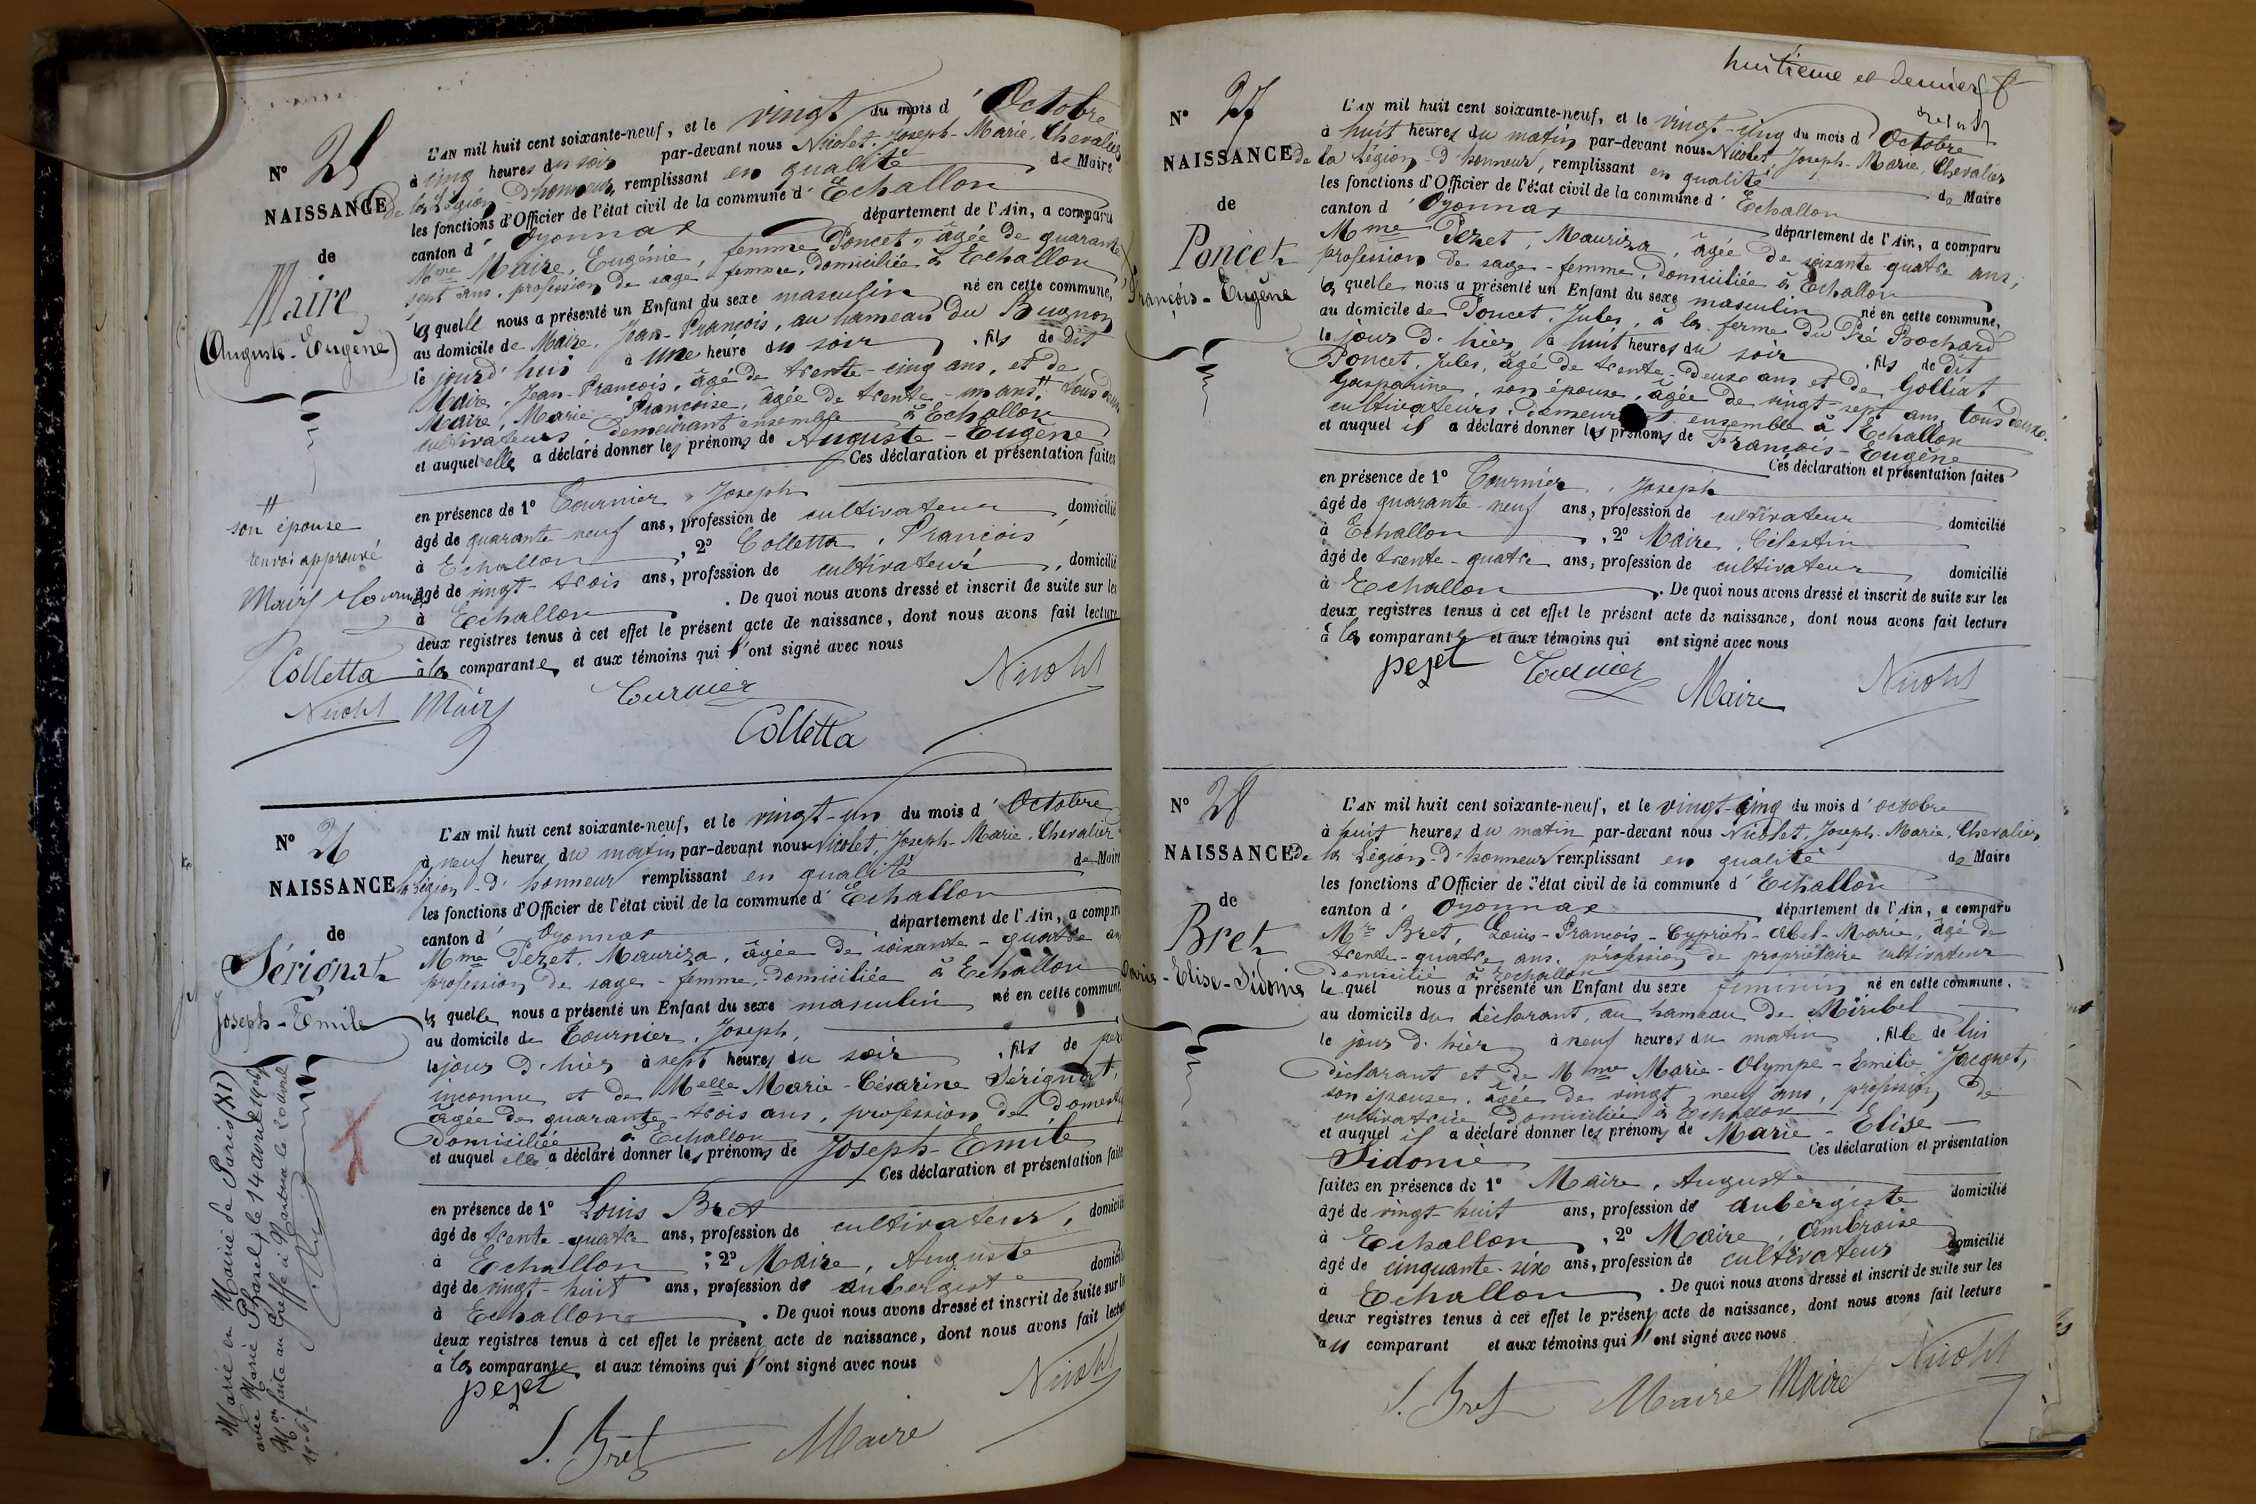 N° 25
NAISSANCE
de
Maire
(Auguste-Eugène)
L'AN mil huit cent soixante-neuf, et le vingt du mois d'Octobre
à cinq heures du soir par-devant nous Nicolet, Joseph-Marie, Chevalier
de la Légion-d'honneur, remplissant en qualité de Maire
les fonctions d'Officier de l'état civil de la commune d'Echallon
canton d'Oyonnax département de l'Ain, a comparu
Mme Maire, Eugénie, femme Poncet, âgée de quarante
sept ans, profession de sage-femme, domiciliée à Echallon
laquelle nous a présenté un Enfant du sexe masculin né en cette commune,
au domicile de Maire, Jean-François, au hameau du Bugnon
le jourd'hui à une heure du soir, fils de dit
Maire, Jean-François, âgé de trente-cinq ans, et de
Maire, Marie Françoise, âgée de trente-un ans, # tous deux
cultivateurs demeurant ensemble à Echallon
et auquel elle a déclaré donner les prénoms de Auguste-Eugène
Ces déclaration et présentation faites
en présence de 1° Tournier, Joseph
âgé de quarante neuf ans, profession de cultivateur, domicilié
à Echallon, 2° Colletta, François
âgé de vingt-trois ans, profession de cultivateur, domicilié
à Echallon. De quoi nous avons dressé et inscrit de suite sur les
deux registres tenus à cet effet le présent acte de naissance, dont nous avons fait lecture
à la comparante et aux témoins qui l'ont signé avec nous
# son épouse
renvoi approuvé
Maire Tournier
Colletta
Nicolet Maire Tournier Nicolet
Colletta
N° 26
NAISSANCE
de
Sérignat
Joseph-Emile
L'AN mil huit cent soixante-neuf, et le vingt-un du mois d'Octobre
à neuf heures du matin par-devant nous Nicolet, Joseph-Marie, Chevalier
la Légion-d'honneur remplissant en qualité de Maire
les fonctions d'Officier de l'état civil de la commune d'Echallon
canton d'Oyonnax département de l'Ain, a comparu
Mme Pezet, Mauriza, âgée de soixante-quatre ans
profession de sage-femme, domiciliée à Echallon
laquelle nous a présenté un Enfant du sexe masculin né en cette commune,
au domicile de Tournier, Joseph,
le jour d'hier à sept heures du soir, fils de père
inconnu et de Melle Marie-Césarine Sérignat,
âgée de quarante-trois ans, profession de domestique
domiciliée à Echallon
et auquel elle a déclaré donner les prénoms de Joseph-Emile
Ces déclaration et présentation faites
en présence de 1° Louis Bret
âgé de trente-quatre ans, profession de cultivateur, domicilié
à Echallon; 2° Maire, Auguste
âgé de vingt-huit ans, profession de aubergiste domicilié
à Echallon. De quoi nous avons dressé et inscrit de suite sur les
deux registres tenus à cet effet le présent acte de naissance, dont nous avons fait lecture
à la comparante et aux témoins qui l'ont signé avec nous
pezet Nicolet
L. Bret Maire
Marié en Mairie de Paris (XI)
avec Marie Phasel, le 14 avril 1904
Mon faite au Greffe à Nantua le 20 avril
1904
huitième et dernier f
N° 27
NAISSANCE
de
Poncet
François-Eugène
L'AN mil huit cent soixante-neuf, et le vingt-cinq du mois d'Octobre
à huit heures du matin par-devant nous Nicolet, Joseph-Marie, Chevalier
de la Légion-d'honneur, remplissant en qualité de Maire
les fonctions d'Officier de l'état civil de la commune d'Echallon
canton d'Oyonnax département de l'Ain, a comparu
Mme Pezet, Mauriza, âgée de soixante quatre ans,
profession de sage-femme, domiciliée à Echallon
laquelle nous a présenté un Enfant du sexe masculin né en cette commune,
au domicile de Poncet, Jules, à la ferme du Pré Bochard
le jour d'hier à huit heures du soir, fils de dit
Poncet, Jules, âgé de trente-deux ans et de Golliat,
Gasparine, son épouse, âgée de vingt-sept ans, tous deux
cultivateurs, demeurant ensemble à Echallon
et auquel il a déclaré donner les prénoms de François-Eugène
Ces déclaration et présentation faites
en présence de 1° Tournier, Joseph
âgé de quarante-neuf ans, profession de cultivateur domicilié
à Echallon, 2° Maire, Célestin
âgé de trente-quatre ans, profession de cultivateur domicilié
à Echallon. De quoi nous avons dressé et inscrit de suite sur les
deux registres tenus à cet effet le présent acte de naissance, dont nous avons fait lecture
à la comparante et aux témoins qui ont signé avec nous
pezet Tournier Maire Nicolet
N° 28
NAISSANCE
de
Bret
Marie-Elise-Sidonie
L'AN mil huit cent soixante-neuf, et le vingt-cinq du mois d'octobre
à huit heures du matin par-devant nous Nicolet, Joseph-Marie, Chevalier
de la Légion-d'honneur remplissant en qualité de Maire
les fonctions d'Officier de l'état civil de la commune d'Echallon
canton d'Oyonnax département de l'Ain, a comparu
Mr Bret, Louis-François-Cyprien-Abel-Marie, âgé de
trente-quatre ans, profession de propriétaire cultivateur
domicilié à Echallon
lequel nous a présenté un Enfant du sexe féminin né en cette commune.
au domicile du déclarant, au hameau de Miribel
le jour d'hier à neuf heures du matin, fille de lui
déclarant et de Mme Marie-Olympe-Emilie Jacquet,
son épouse, âgée de vingt neuf ans, profession de
cultivatrice domiciliée à Echallon
et auquel il a déclaré donner les prénoms de Marie-Elise-
Sidonie Ces déclaration et présentation
faites en présence de 1° Maire, Auguste
âgé de vingt-huit ans, profession de aubergiste domicilié
à Echallon, 2° Maire, Ambroise
âgé de cinquante-six ans, profession de cultivateur domicilié
à Echallon. De quoi nous avons dressé et inscrit de suite sur les
deux registres tenus à cet effet le présent acte de naissance, dont nous avons fait lecture
au comparant et aux témoins qui l'ont signé avec nous
L. Bret Maire Maire Nicolet